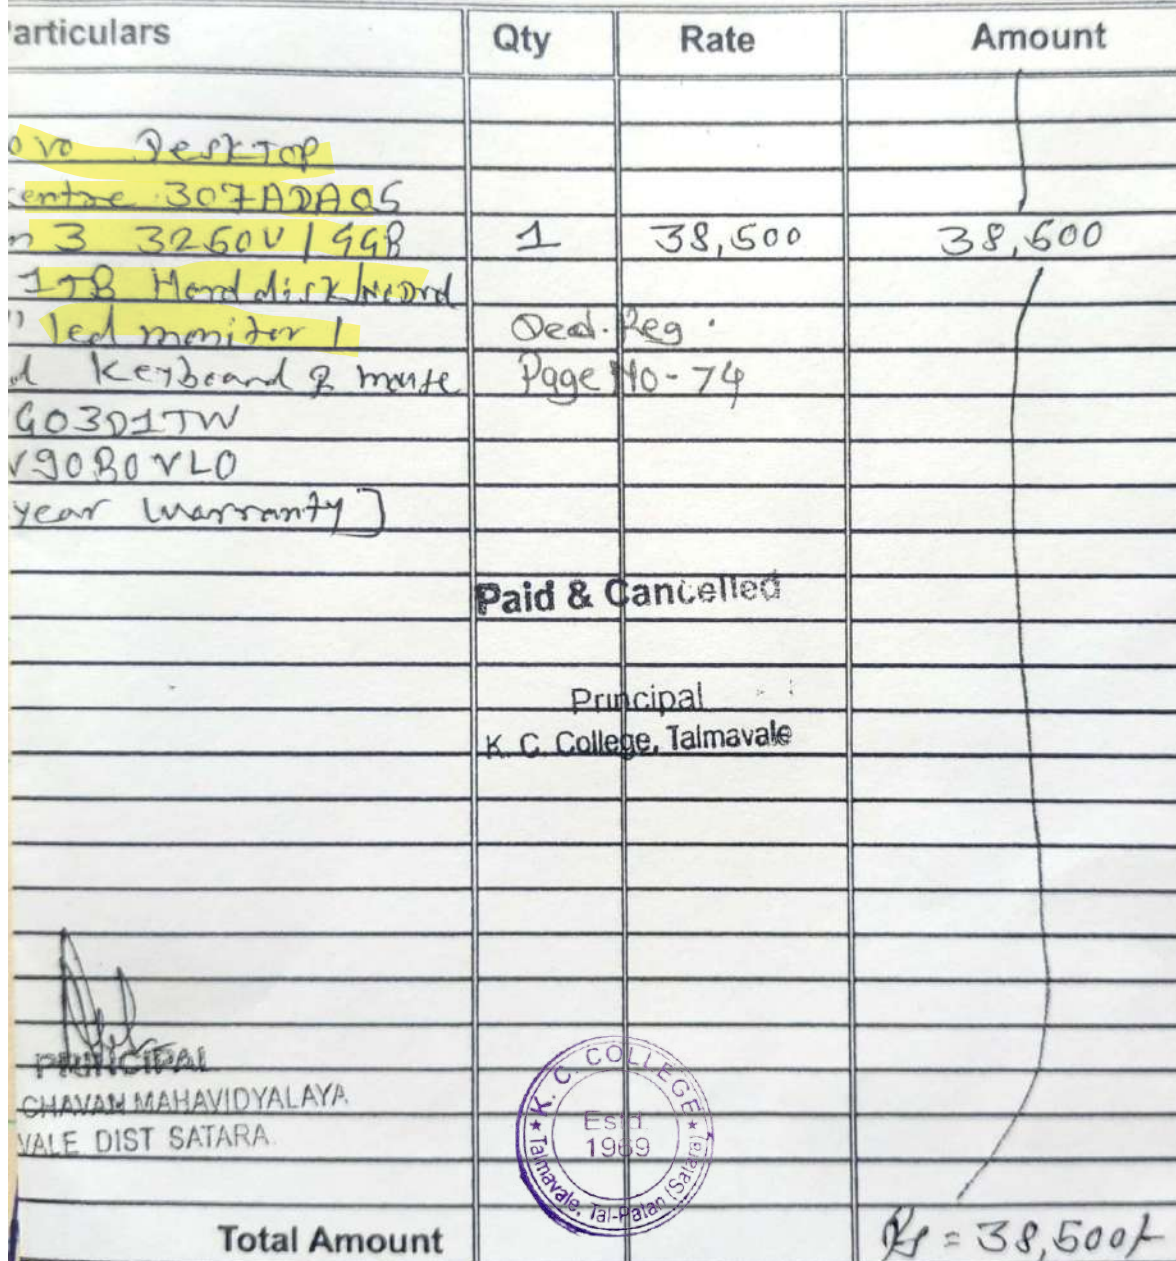 articulars Qty Rate Amount
ovo Desktop
entre 307ADA05
n 3 3250U / 4GB 1 38,500 38,500
1TB Hard disk / No Dvd
" led monitor / Dead. Reg.
d Keyboard & mouse Page No - 74
G03D1TW
V90B0VL0
year warranty]
Paid & Cancelled
Principal
K. C. College, Talmavale
PRINCIPAL
CHAVAN MAHAVIDYALAYA
VALE DIST SATARA.
K. C. COLLEGE
Estd.
1969
Talmavale, Tal-Patan (Satara)
Total Amount Rs = 38,500/-